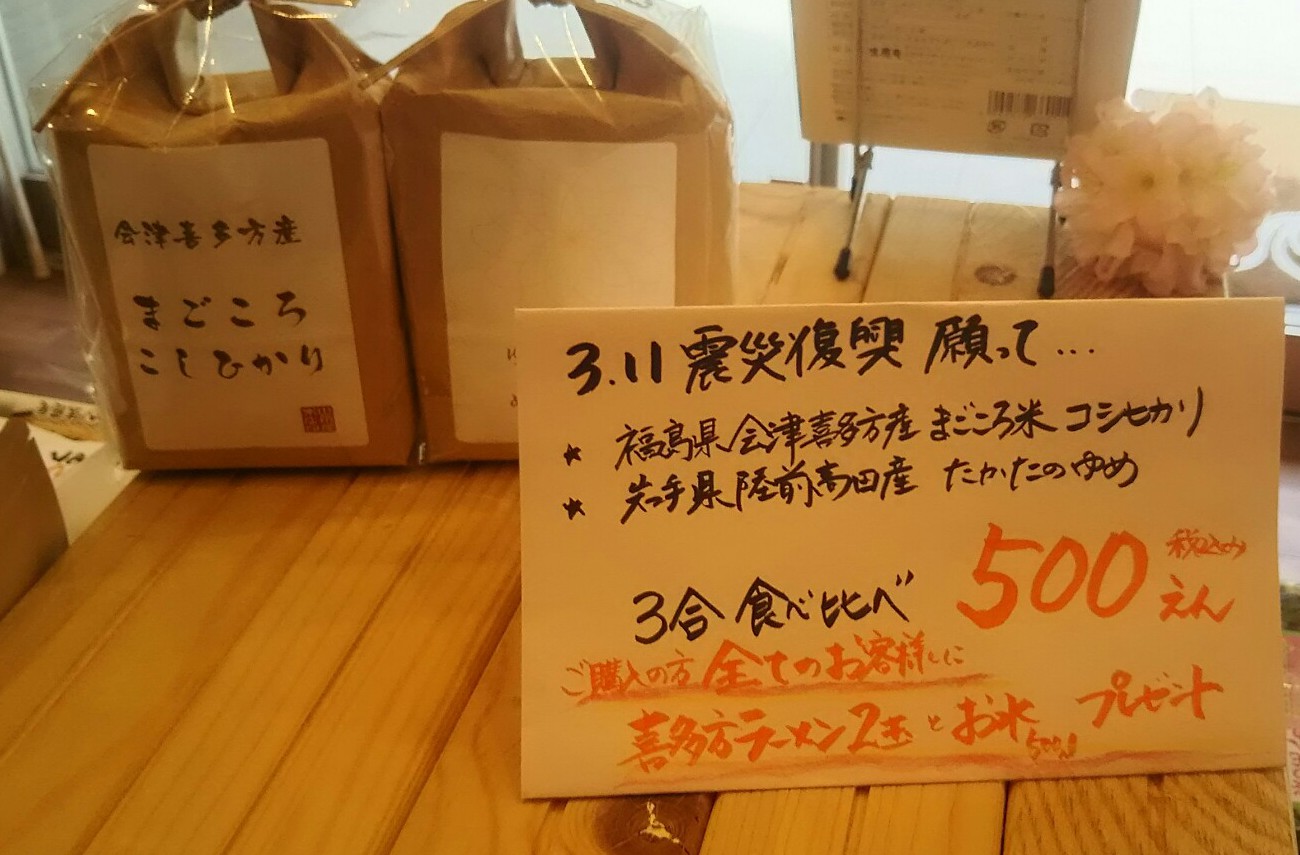 会津喜多方産
まごころ
こしひかり
3.11 震災復興 願って…
★ 福島県会津喜多方産 まごころ米 コシヒカリ
★ 岩手県陸前高田産 たかたのゆめ
3合 食べ比べ 500えん 税込み
ご購入の方 全てのお客様に
喜多方ラーメン2玉とお米 プレゼント